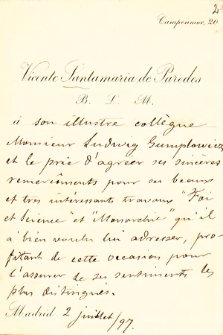 2
Campoamor, 20
Vicente Santamaría de Paredes
B. L. M.
à son illustre collègue
Monsieur Ludwig Gumplowicz
et le prie d'agréer ses sincères
remerciments pour ses beaux
et très intéressants travaux "Foi
et Science" et "Monarchie" qu'il
a bien voulu lui adresser, pro-
fitant de cette occasion pour
l'assurer de ses sentiments les
plus distingués.
Madrid 2 juillet/97.